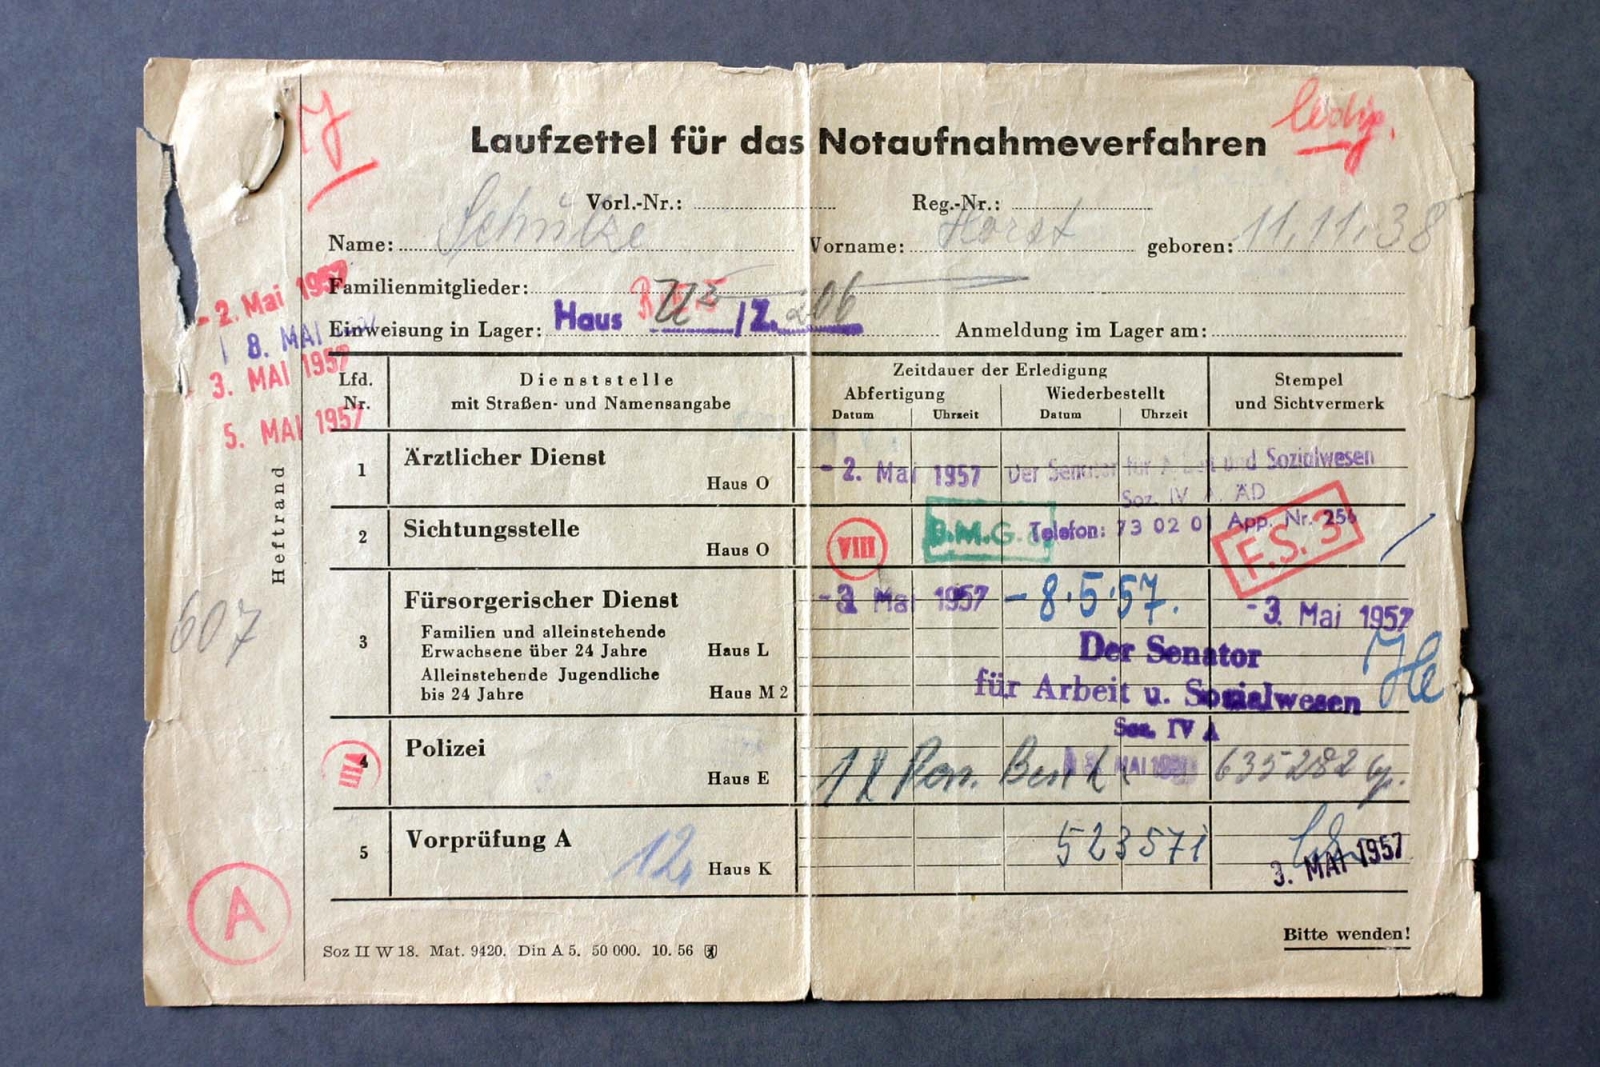 ledig.
Laufzettel für das Notaufnahmeverfahren
Vorl.-Nr.: Reg.-Nr.:
Name: Schulze Vorname: Horst geboren: 11.11.38
Familienmitglieder:
Einweisung in Lager: Haus /Z. 206 Anmeldung im Lager am:
- 2. Mai 1957
8. MAI
3. MAI 1957
5. MAI 1957
Heftrand
607
A
Lfd. Nr.
Dienststelle
mit Straßen- und Namensangabe
Zeitdauer der Erledigung
Abfertigung Wiederbestellt
Datum Uhrzeit Datum Uhrzeit
Stempel
und Sichtvermerk
1 Ärztlicher Dienst
Haus O
- 2. Mai 1957 Der Senator für Arbeit und Sozialwesen
Soz. IV A ÄD
Telefon: 73 02 01 App. Nr. 256
2 Sichtungsstelle
Haus O
VIII B.M.G. F.S. 3
3 Fürsorgerischer Dienst
Familien und alleinstehende
Erwachsene über 24 Jahre Haus L
Alleinstehende Jugendliche
bis 24 Jahre Haus M 2
- 3. Mai 1957 - 8.5.57. - 3. Mai 1957
Der Senator
für Arbeit u. Sozialwesen
Soz. IV A
4 Polizei
Haus E
VIII
635282
5 Vorprüfung A
12,
Haus K
523571
3. MAI 1957
Soz II W 18. Mat. 9420. Din A 5. 50 000. 10. 56
Bitte wenden!